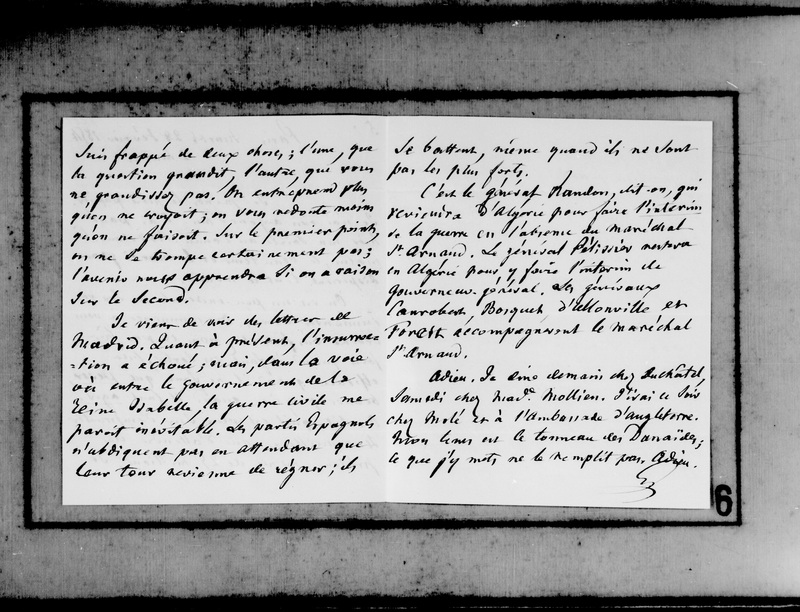 suis frappé de deux choses; l'une, que
la question grandit, l'autre, que vous
ne grandissez pas. On entreprend plus
qu'on ne croyait; on vous redoute moins
qu'on ne faisait. Sur le premier point,
on ne se trompe certainement pas;
l'avenir nous apprendra si on a raison
sur le second.
Je viens de voir des lettres de
Madrid. Quant à présent, l'insurrec-
-tion a échoué; mais, dans la voie
où entre le gouvernement de la
Reine Isabelle, la guerre civile me
paroit inévitable. Les partis Espagnols
n'abdiquent pas en attendant que
leur tour revienne de régner; ils
se battent, même quand ils ne sont
pas les plus forts.
C'est le général Randon, dit-on, qui
reviendra d'Algérie pour faire l'interim
de la guerre en l'absence du maréchal
St Arnaud. Le général Pélissier restera
en Algérie pour y faire l'interim de
gouverneur général. Les généraux
Canrobert, Bosquet, d'Allonville et
Forest accompagneront le maréchal
St Arnaud.
Adieu. Je dine demain chez Duchâtel,
Samedi chez Mad. Mollien. J'irai ce soir
chez Molé et à l'ambassade d'Angleterre.
Mon tems est le tonneau des Danaïdes;
ce que j'y mets ne le remplit pas. Adieu.
6